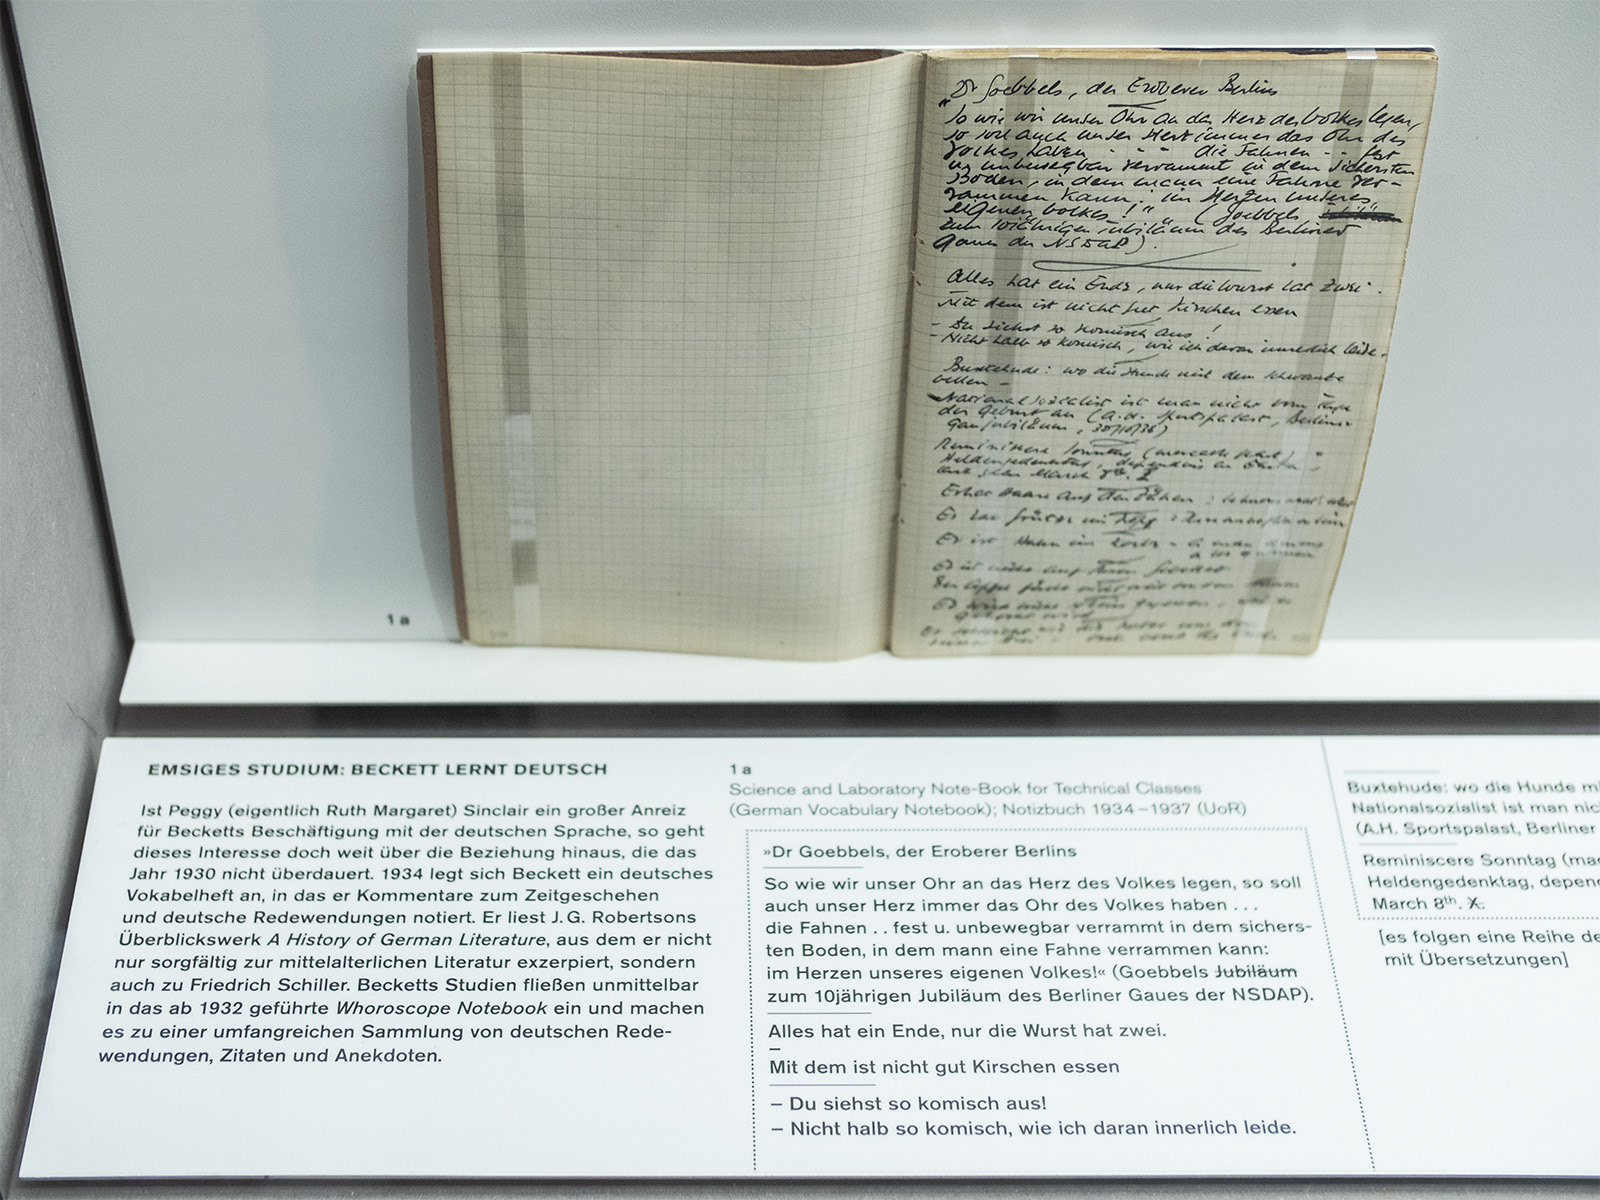 Dr Goebbels, der Eroberer Berlins
"So wie wir unser Ohr an das Herz des Volkes legen,
so soll auch unser Herz immer das Ohr des
Volkes haben - - - die Fahnen - - fest
u. unbewegbar verrammt in dem sichersten
Boden, in dem mann eine Fahne ver-
rammen kann: im Herzen unseres
eigenen Volkes!" (Goebbels Jubiläum
zum 10jährigen Jubiläum des Berliner
Gaues der NSDAP).
Alles hat ein Ende, nur die Wurst hat zwei.
Mit dem ist nicht gut Kirschen essen
- Du siehst so komisch aus!
- Nicht halb so komisch, wie ich daran innerlich leide.
Buxtehude: wo die Hunde mit dem Schwanze
bellen -
Nationalsozialist ist man nicht vom Tage
der Geburt an (A.H. Sportspalast, Berliner
Gaujubiläum, 30/10/36)
Reminiscere Sonntag
Heldengedenktag, depending on
March 8th. X
Er hat Haare auf den Zähnen
Er hat Grütze im Kopf
Er ist Hahn im Korb
1 a
EMSIGES STUDIUM: BECKETT LERNT DEUTSCH
Ist Peggy (eigentlich Ruth Margaret) Sinclair ein großer Anreiz
für Becketts Beschäftigung mit der deutschen Sprache, so geht
dieses Interesse doch weit über die Beziehung hinaus, die das
Jahr 1930 nicht überdauert. 1934 legt sich Beckett ein deutsches
Vokabelheft an, in das er Kommentare zum Zeitgeschehen
und deutsche Redewendungen notiert. Er liest J. G. Robertsons
Überblickswerk A History of German Literature, aus dem er nicht
nur sorgfältig zur mittelalterlichen Literatur exzerpiert, sondern
auch zu Friedrich Schiller. Becketts Studien fließen unmittelbar
in das ab 1932 geführte Whoroscope Notebook ein und machen
es zu einer umfangreichen Sammlung von deutschen Rede-
wendungen, Zitaten und Anekdoten.
1 a
Science and Laboratory Note-Book for Technical Classes
(German Vocabulary Notebook); Notizbuch 1934–1937 (UoR)
»Dr Goebbels, der Eroberer Berlins
So wie wir unser Ohr an das Herz des Volkes legen, so soll
auch unser Herz immer das Ohr des Volkes haben . . .
die Fahnen . . fest u. unbewegbar verrammt in dem sichers-
ten Boden, in dem mann eine Fahne verrammen kann:
im Herzen unseres eigenen Volkes!« (Goebbels Jubiläum
zum 10jährigen Jubiläum des Berliner Gaues der NSDAP).
Alles hat ein Ende, nur die Wurst hat zwei.
Mit dem ist nicht gut Kirschen essen
– Du siehst so komisch aus!
– Nicht halb so komisch, wie ich daran innerlich leide.
Buxtehude: wo die Hunde mi
Nationalsozialist ist man nic
(A.H. Sportspalast, Berliner
Reminiscere Sonntag (ma
Heldengedenktag, depen
March 8th. X.
[es folgen eine Reihe de
mit Übersetzungen]